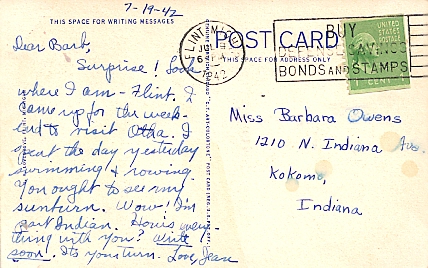 7-19-42
THIS SPACE FOR WRITING MESSAGES
Dear Barb,
Surprise! Look
where I am - Flint. I
came up for the week-
end to visit Otha. I
spent the day yesterday
swimming & rowing.
You ought to see my
sunburn. Wow! I'm
part Indian. How's every-
thing with you? Write
soon. Its your turn. Love, Jean
POST CARD
THIS SPACE FOR ADDRESS ONLY
FLINT, MICH.
JUL
1942
BUY
DEFENSE SAVINGS
BONDS AND STAMPS
UNITED
STATES
POSTAGE
1 CENT
Miss Barbara Owens
1210 N. Indiana Ave.
Kokomo,
Indiana